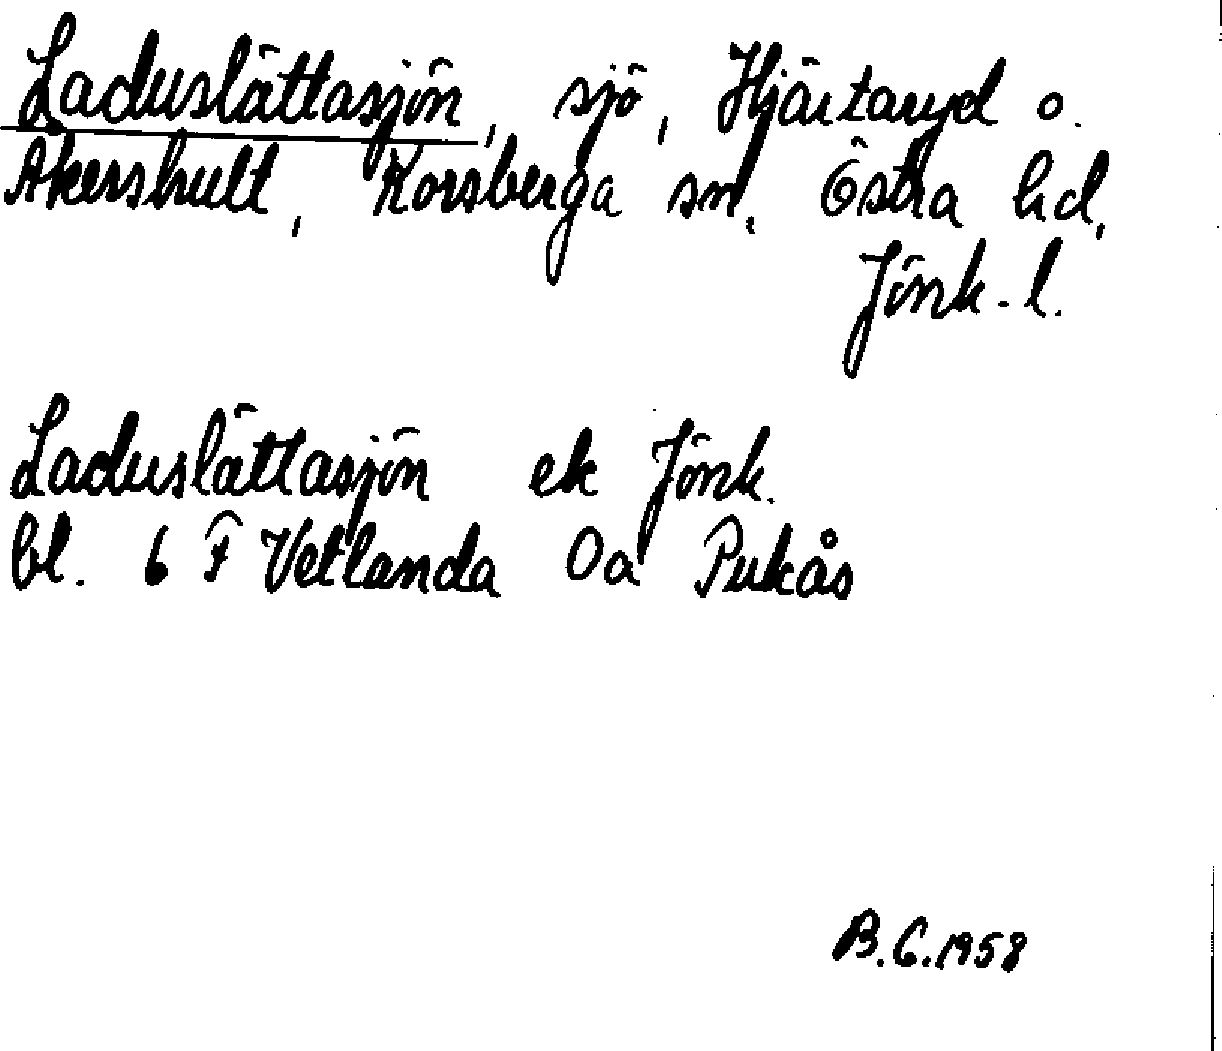 Laduslättasjön, sjö, Hjärtaryd o.
Åkershult, Korsberga sn, Östra hd,
Jönk. l.
Laduslättasjön ek Jönk.
bl. 6 F Vetlanda Oa Pukås
B.G.1958